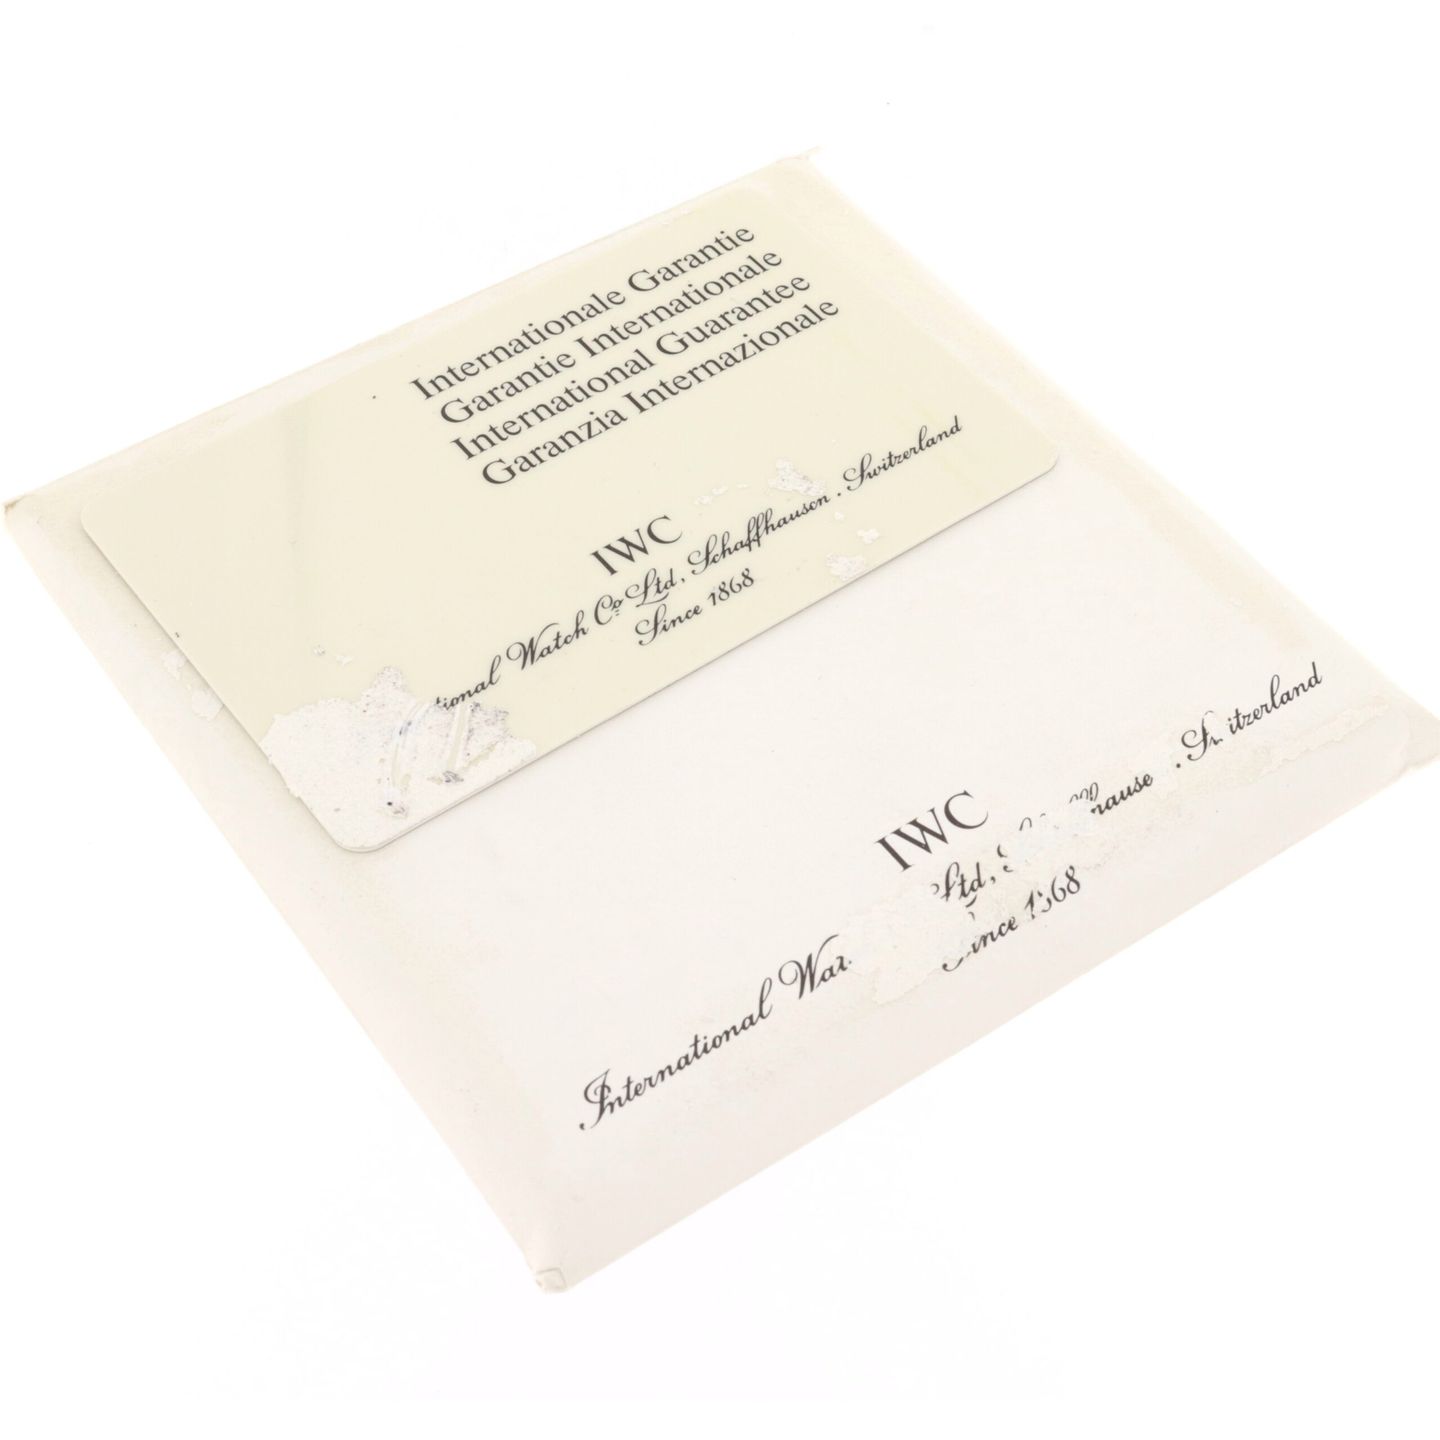 Internationale Garantie
Garantie Internationale
International Guarantee
Garanzia Internazionale
IWC
Watch Co Ltd, Schaffhausen . Switzerland
Since 1868
IWC
International Ltd, . Switzerland
Since 1868